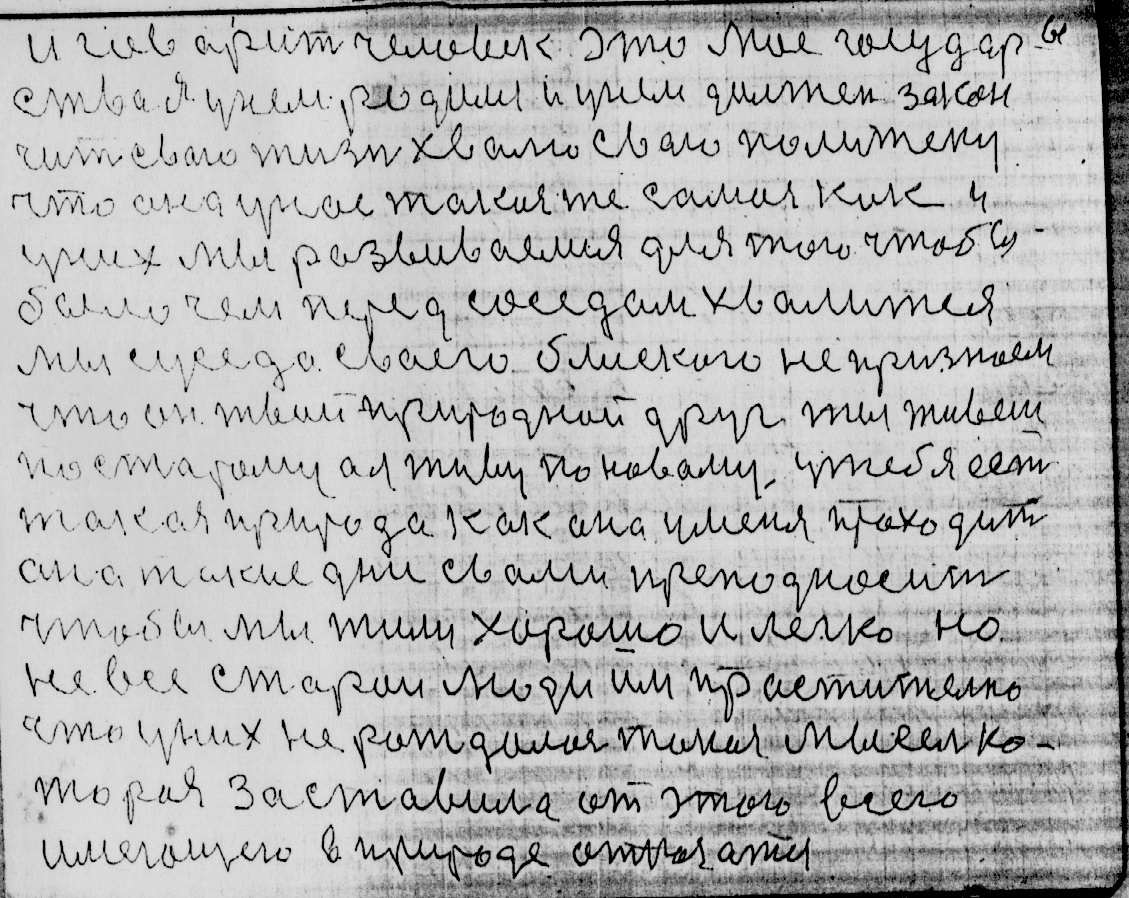 и гов арит человек это мое государ
ства я унем родилси и унем должен закон
чит сваю жизн хвалю сваю политеку
что она унас такая же самая как и
уних мы развиваемся для того чтобы
было чем перед соседам хвалится
мы суседа сваего близкого не признаем
что он твой природной друг ты живеш
по старому а я живу по новаму, утебя ест
такая природа как она уменя праходит
она такие дни свами преподносит
чтобы мы жили хорошо и легко но
не все старои люди им прастително
что уних не раждалас такая мысел ко-
торая заставила от этого всего
имеющего в природе